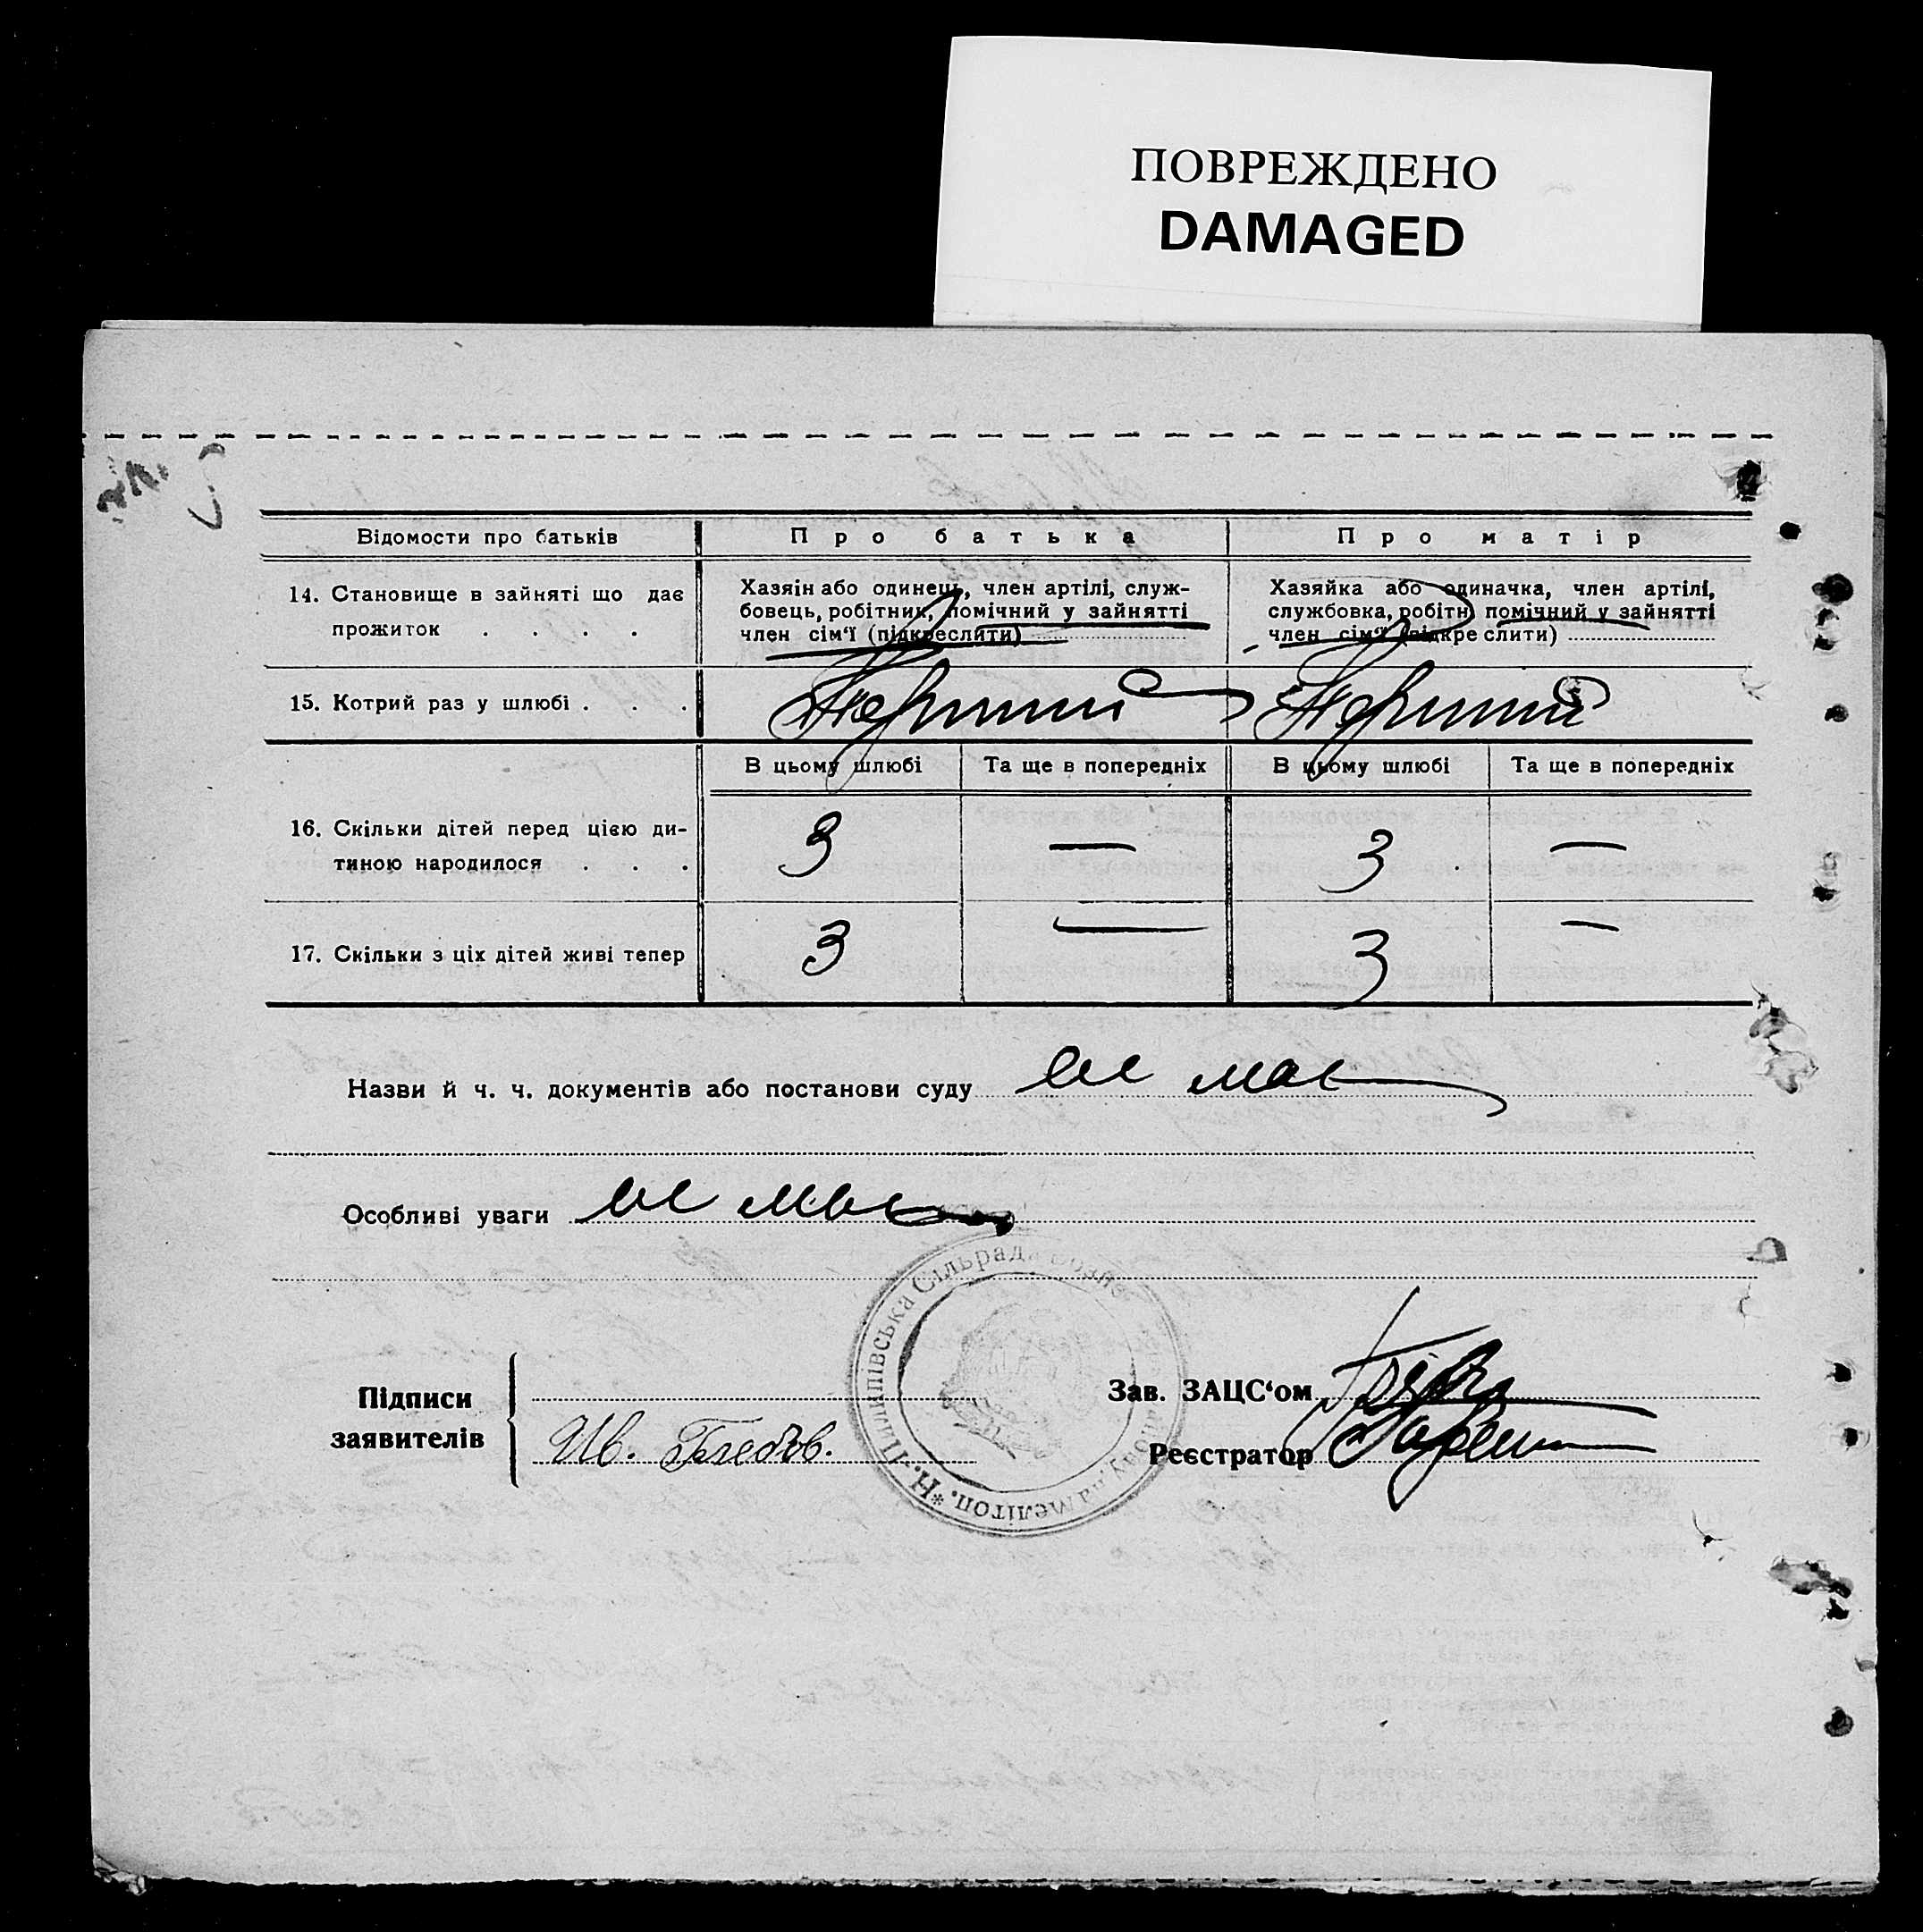 ПОВРЕЖДЕНО
DAMAGED
Відомости про батьків
Про батька
Про матір
14. Становище в зайняті що дає
прожиток . . . .
Хазяін або одинець, член артілі, служ-
бовець, робітник, помічний у зайнятті
член сім‘ї (підкреслити)
Хазяйка або одиначка, член артілі,
службовка, робітн помічний у зайнятті
член сім‘ї (підкре слити)
15. Котрий раз у шлюбі . . .
Перший
Перший
В цьому шлюбі
Та ще в попередніх
В цьому шлюбі
Та ще в попередніх
16. Скільки дітей перед цією ди-
тиною народилося . . .
3 —
3 —
17. Скільки з ціх дітей живі тепер
3 —
3 —
Назви й ч. ч. документів або постанови суду не має
Особливі уваги не має
Н.-Пилипівська Сільрада
Мелітоп.
Підписи
заявителів
Ив. Глебов.
Зав. ЗАЦС‘ом
Реєстратор